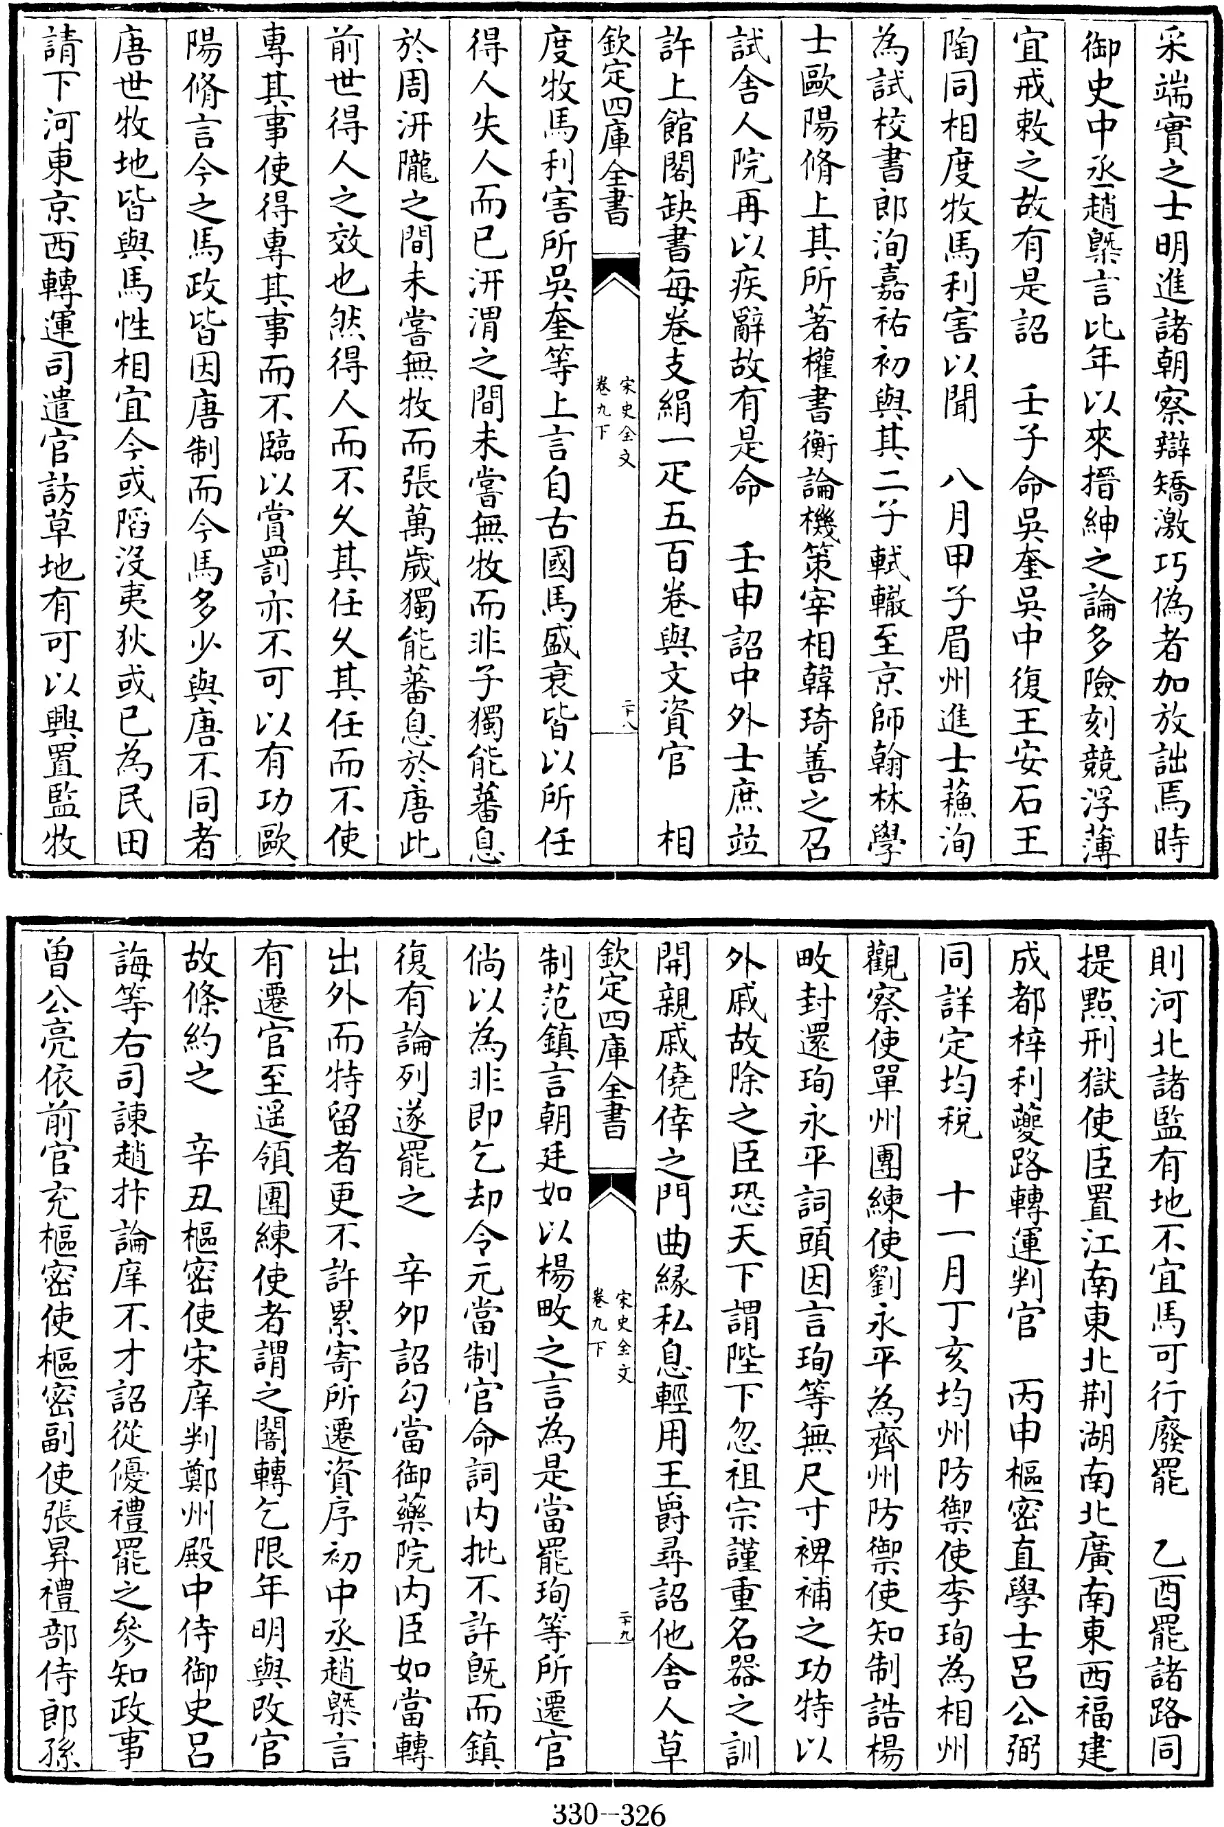 采端實之士明進諸朝察辯矯激巧偽者加放詘焉時
御史中丞趙槩言比年以來搢紳之論多險刻競浮薄
宜戒敕之故有是詔　壬子命吳奎吳中復王安石王
陶同相度牧馬利害以聞　八月甲子眉州進士蘓洵
為試校書郎洵嘉祐初與其二子軾轍至京師翰林學
士歐陽脩上其所著權書衡論機策宰相韓琦善之召
試舍人院再以疾辭故有是命　壬申詔中外士庶竝
許上館閣缺書每卷支絹一疋五百卷與文資官　相
欽定四庫全書
宋史全文
卷九下
二十八
度牧馬利害所吳奎等上言自古國馬盛衰皆以所任
得人失人而已汧渭之間未嘗無牧而非子獨能蕃息
於周汧隴之間未嘗無牧而張萬歲獨能蕃息於唐此
前世得人之效也然得人而不久其任久其任而不使
專其事使得專其事而不臨以賞罰亦不可以有功歐
陽脩言今之馬政皆因唐制而今馬多少與唐不同者
唐世牧地皆與馬性相宜今或䧟沒夷狄或已為民田
請下河東京西轉運司遣官訪草地有可以興置監牧
則河北諸監有地不宜馬可行廢罷　乙酉罷諸路同
提㸃刑獄使臣置江南東北荆湖南北廣南東西福建
成都梓利夔路轉運判官　丙申樞密直學士呂公弼
同詳定均稅　十一月丁亥均州防禦使李珣為相州
觀察使單州團練使劉永平為齊州防禦使知制誥楊
畋封還珣永平詞頭因言珣等無尺寸裨補之功特以
外戚故除之臣恐天下謂陛下忽祖宗謹重名器之訓
開親戚僥倖之門曲緣私息輕用王爵尋詔他舍人草
欽定四庫全書
宋史全文
卷九下
二十九
制范鎮言朝廷如以楊畋之言為是當罷珣等所遷官
倘以為非即乞却令元當制官命詞内批不許旣而鎮
復有論列遂罷之　辛卯詔勾當御藥院内臣如當轉
出外而特留者更不許累寄所遷資序初中丞趙槩言
有遷官至遥領團練使者謂之闇轉乞限年明與改官
故條約之　辛丑樞密使宋庠判鄭州殿中侍御史呂
誨等右司諫趙抃論庠不才詔從優禮罷之參知政事
曽公亮依前官充樞密使樞密副使張昇禮部侍郎孫
330--326